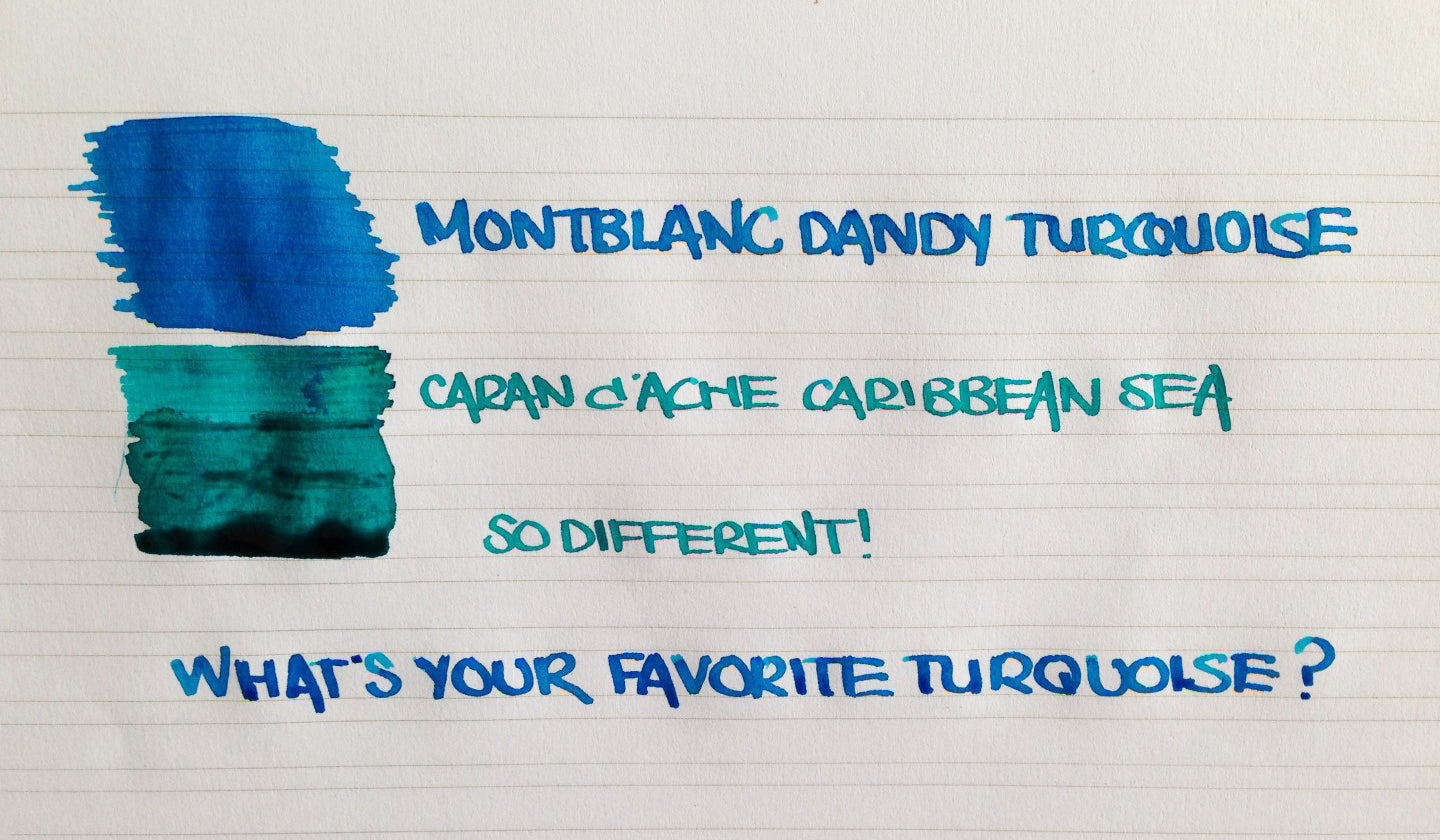 MONTBLANC DANDY TURQUOISE
CARAN d'ACHE CARIBBEAN SEA
SO DIFFERENT!
WHAT'S YOUR FAVORITE TURQUOISE?